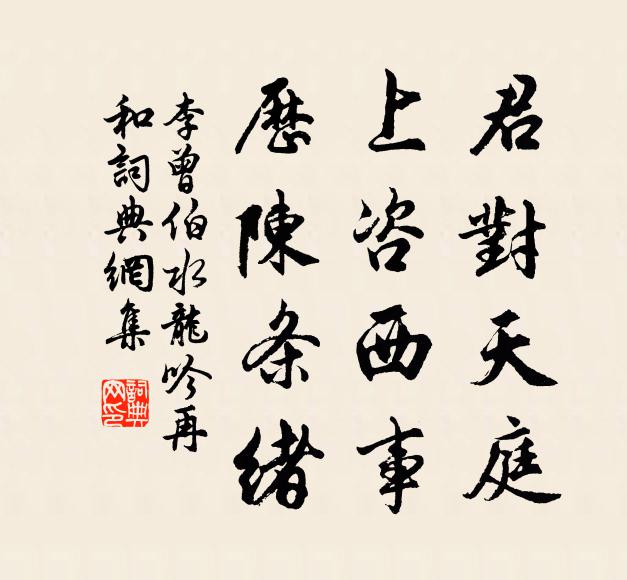 君對天庭
上咨西事
歷陳条緒
李曾伯水龍吟再
和詞典網集
詞典網印